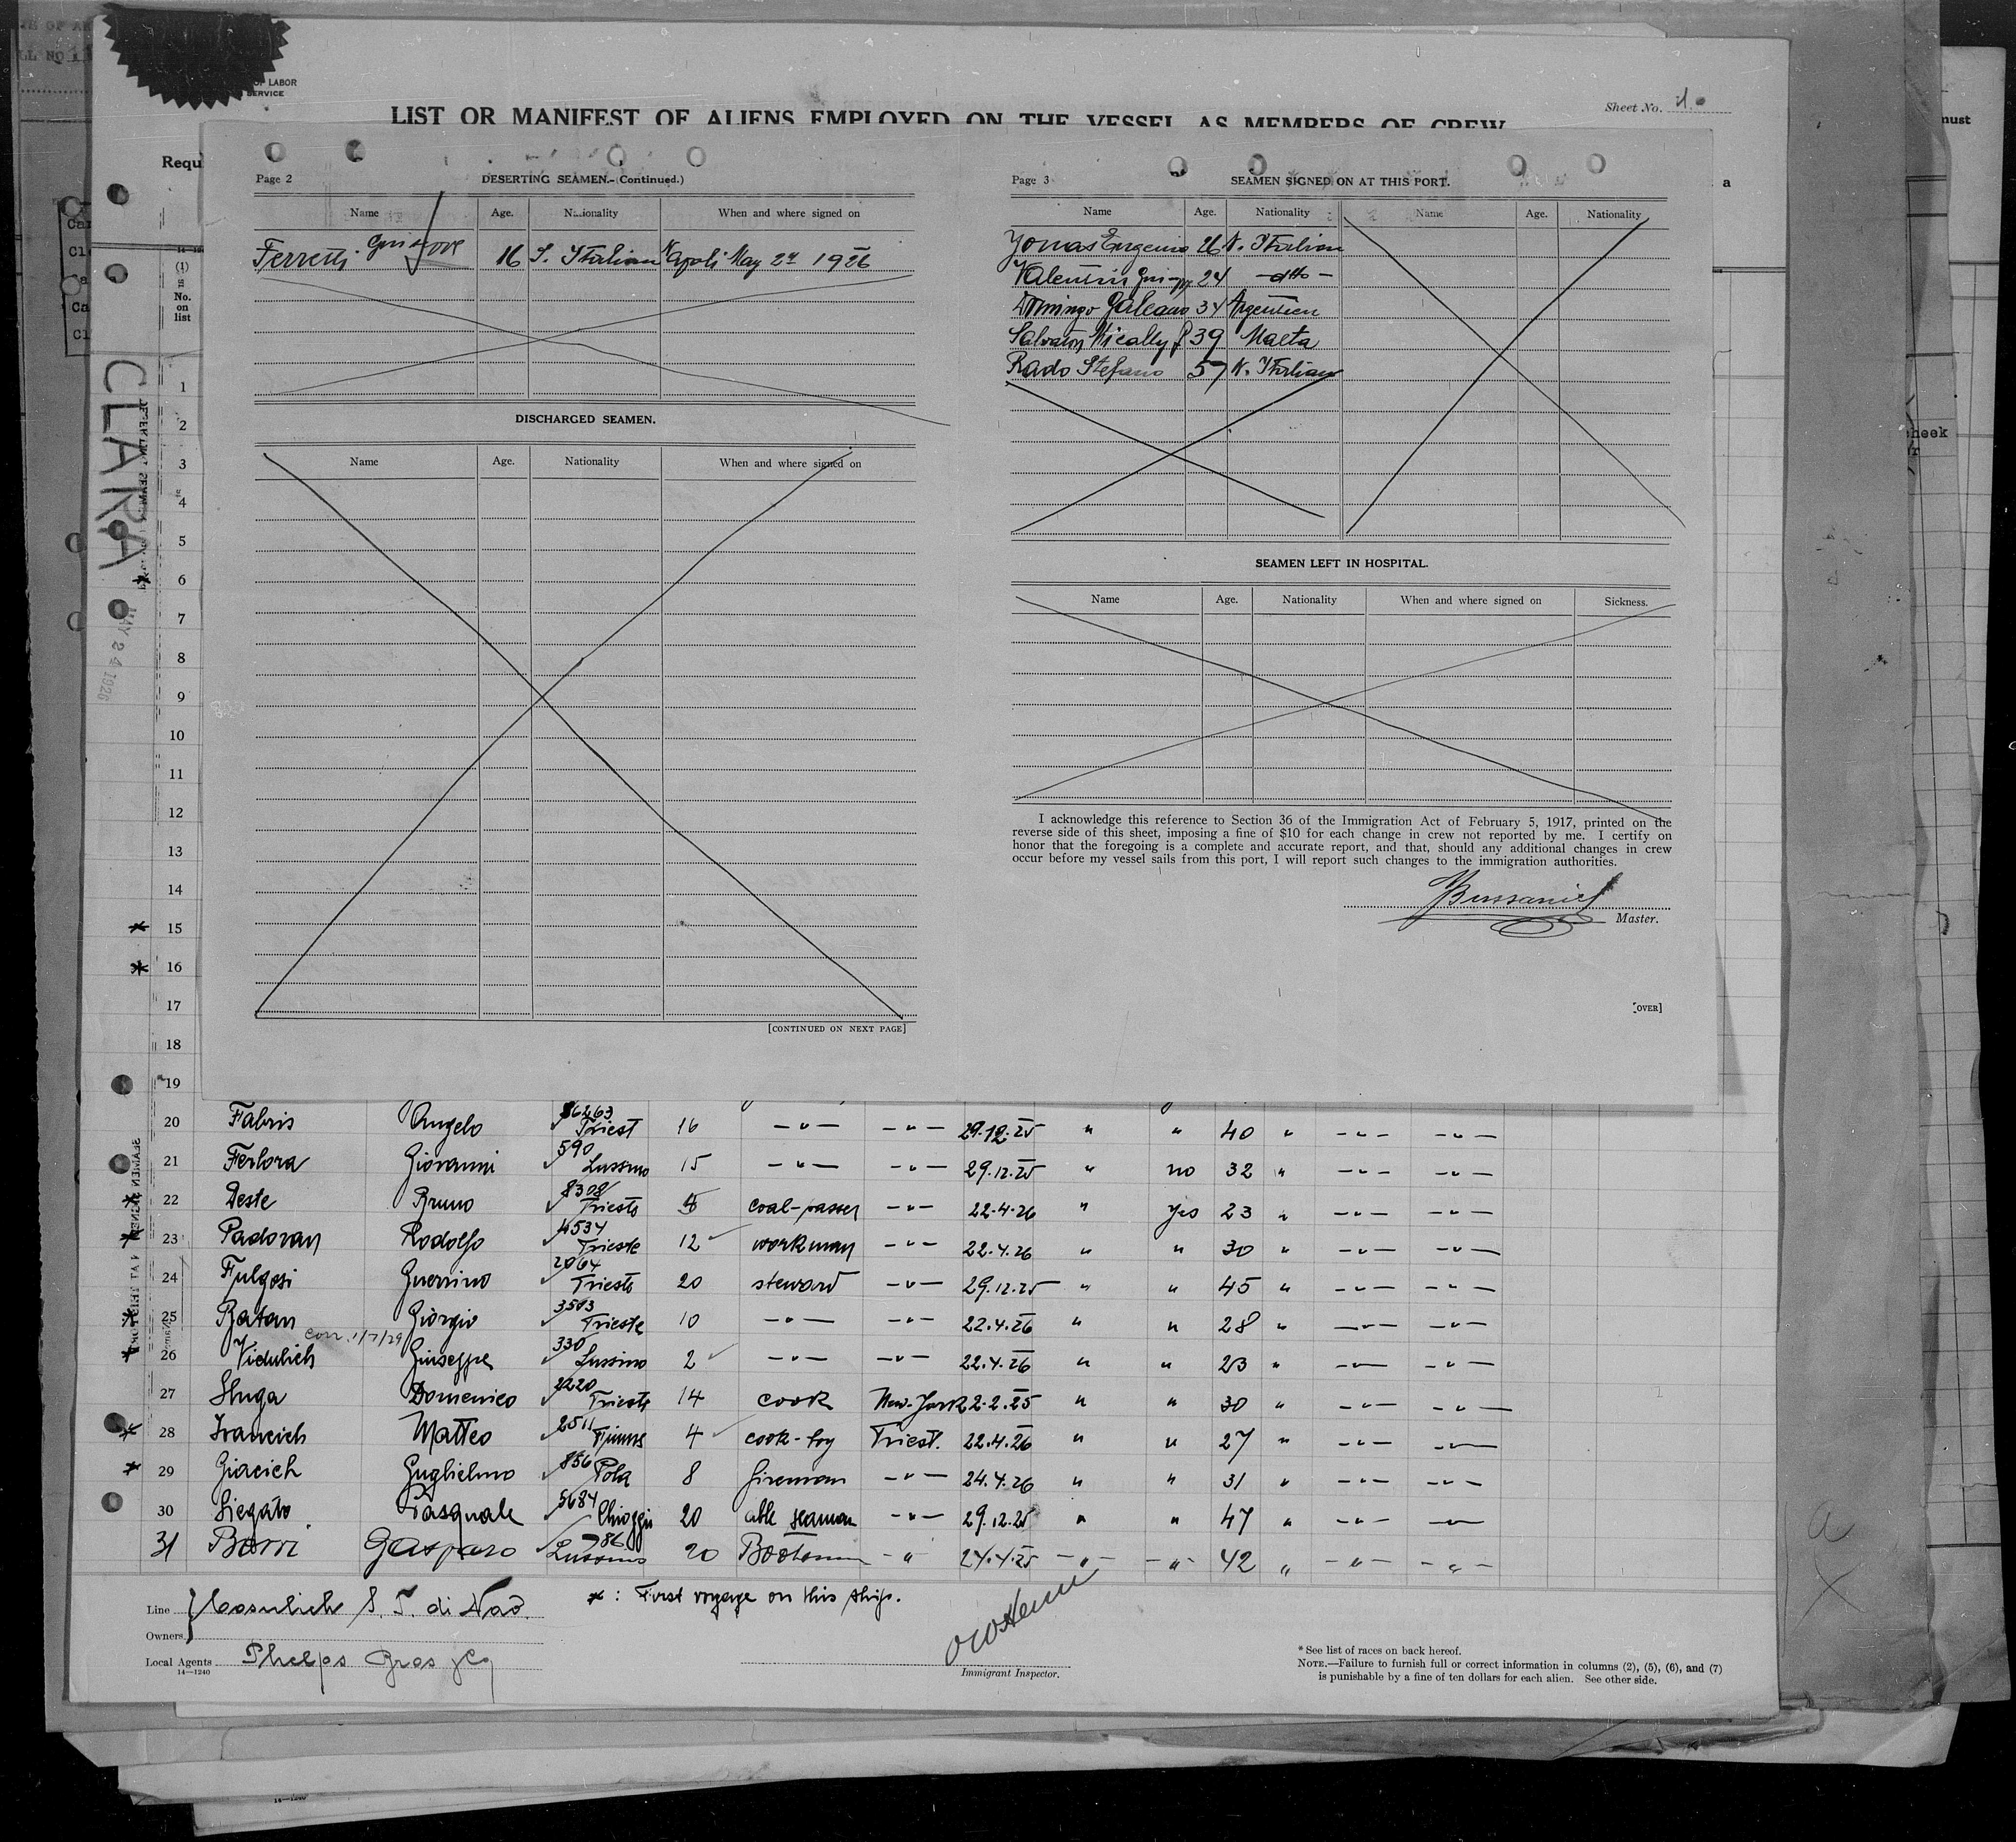 OF LABOR
SERVICE
LIST OR MANIFEST OF ALIENS EMPLOYED ON THE VESSEL AS MEMBERS OF CREW
Sheet No.
must
Requ
a
Page 2
DESERTING SEAMEN.-(Continued.)
Name Age. Nationality When and where signed on
Ferretti 16 S. Italian Napoli May 2nd 1926
DISCHARGED SEAMEN.
Name Age. Nationality When and where signed on
[CONTINUED ON NEXT PAGE]
Page 3
SEAMEN SIGNED ON AT THIS PORT.
Name Age. Nationality Name Age. Nationality
Jonas Eugenio 26 N. Italian
24 - dtto -
Domingo Galeano 34 Argentien
39 Malta
Rado Stefano 57 N. Italian
SEAMEN LEFT IN HOSPITAL.
Name Age. Nationality When and where signed on Sickness.
I acknowledge this reference to Section 36 of the Immigration Act of February 5, 1917, printed on the
reverse side of this sheet, imposing a fine of $10 for each change in crew not reported by me. I certify on
honor that the foregoing is a complete and accurate report, and that, should any additional changes in crew
occur before my vessel sails from this port, I will report such changes to the immigration authorities.
Master.
[OVER]
(1)
No.
on
list
CLARA
MAY 24 1926
1
2
3
4
5
6
7
8
9
10
11
12
13
14
15
16
17
18
19
20 Fabris Angelo Triest 16 -"- -"- 29.12.25 " " 40 " -"- -"-
21 Ferlora Giovanni 590 Lussino 15 -"- -"- 29.12.25 " no 32 " -"- -"-
22 Deste Bruno 8308 Trieste coal-passer -"- 22.4.26 " yes 23 " -"- -"-
23 Padovan Rodolfo 4534 Trieste 12 workman -"- 22.4.26 " " 30 " -"- -"-
24 Fulgosi Guerrino 2064 Trieste 20 steward -"- 29.12.25 " " 45 " -"- -"-
25 Batan Giorgio 3503 Trieste 10 -"- -"- 22.4.26 " " 28 " -"- -"-
corr. 1/7/29
26 Vidulich Giuseppe 330 Lussino 2 -"- -"- 22.4.26 " " 23 " -"- -"-
27 Sluga Domenico 2220 Trieste 14 cook New-York 2.2.25 " " 30 " -"- -"-
28 Ivancich Matteo 2511 Fiume 4 cook-boy Triest. 22.4.26 " " 27 " -"- -"-
29 Giacich Guglielmo 856 Pola 8 fireman -"- 24.4.26 " " 31 " -"- -"-
30 Siegato Pasquale 5684 Chioggia 20 able seaman -"- 29.12.25 " " 47 " -"- -"-
31 Gasparo 786 Lussino 20 -"- 24.4.25 -"- -"- 42 " -"- -"-
Line Cosulich S. T. di Nav.
Owners
Local Agents Phelps Bros & Co
14—1240
* : First voyage on this ship.
Immigrant Inspector.
* See list of races on back hereof.
NOTE.—Failure to furnish full or correct information in columns (2), (5), (6), and (7)
is punishable by a fine of ten dollars for each alien. See other side.